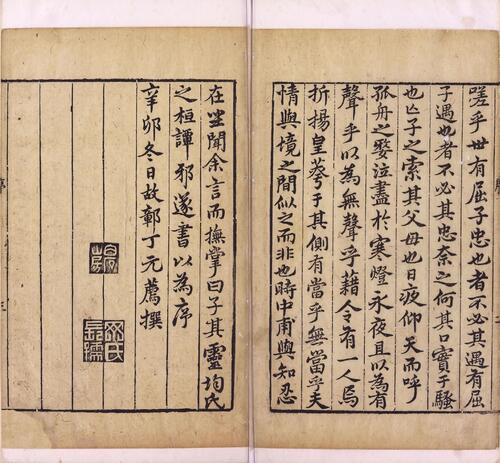 嗟乎世有屈子忠也者不必其遇有屈
子遇也者不必其忠柰之何其口實于騷
也亡子之索其父母也日疲仰天而呼
孤舟之嫠泣盡於寒燈永夜且以為有
聲乎以為無聲乎藉令有一人焉
折揚皇荂于其側有當乎無當乎夫
情與境之間似之而非也時中甫與知忍
在坐聞余言而撫掌曰子其靈均氏
之桓譚邪遂書以為序
辛卯冬日故鄣丁元薦撰
長孺
三